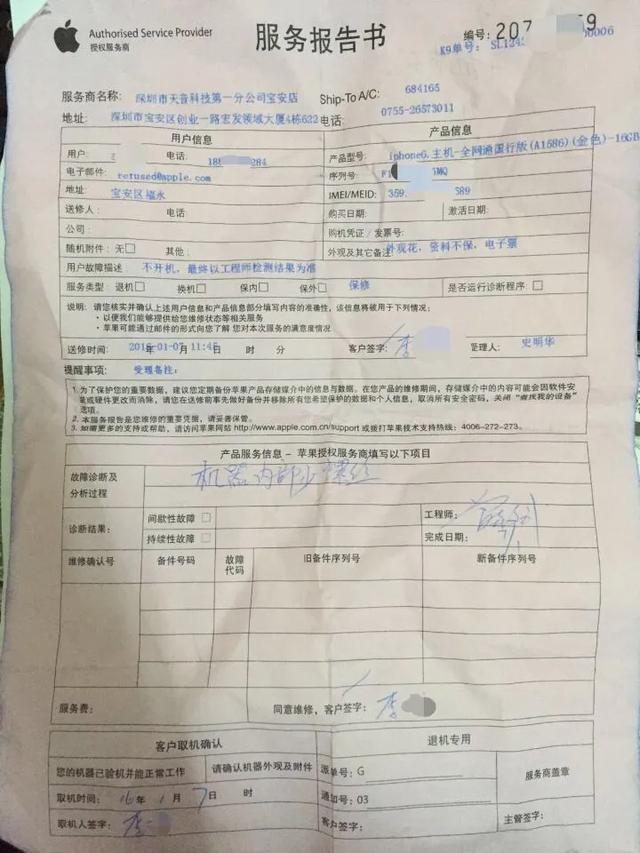 Authorised Service Provider
授权服务商
服务报告书
编号: 207 59
K9单号: SL124 0006
服务商名称: 深圳市天音科技第一分公司宝安店 Ship-To A/C: 684165
地址: 深圳市宝安区创业一路宏发领域大厦4栋622 电话: 0755-26573011
用户信息 产品信息
用户: 电话: 18 284 产品型号: iphone6.主机-全网通国行版(A1586)(金色)-16GB
电子邮件: refused@apple.com 序列号: F1 MQ
地址: 宝安区福永 IMEI/MEID: 359 589
送修人: 电话: 购买日期: 激活日期:
公司: 购机凭证/发票号:
随机附件: 无□ 其他: 外观及其它备注 外观花,资料不保,电子票
用户故障描述 不开机,最终以工程师检测结果为准
服务类型: 退机□ 换机□ 保内□ 保外□ 保修 是否运行诊断程序: □
说明: 请您核实并确认上述用户信息和产品信息部分填写内容的准确性,该信息将被用于下列情况:
• 以便我们能够提供给您维修状态等相关服务
• 苹果可能通过邮件的形式向您了解您对本次服务的满意度情况
送修时间: 2016-01-07 11:45 年 月 日 时 分 客户签字: 李 受理人: 史明华
提醒事项: 受理备注:
1.为了保护您的重要数据,建议您定期备份苹果产品存储媒介中的信息与数据。在您产品的维修期间,存储媒介中的内容可能会因软件安
装或硬件更改而消除,请您在送修前事先做好备份并移除所有您希望保护的数据和个人信息,取消所有安全密码,关闭“查找我的设备”
选项。
2.本服务报告是您维修的重要凭据,请妥善保管。
3.如需更多的支持或帮助,请访问苹果网站http://www.apple.com.cn/support或拨打苹果技术支持热线: 4006-272-273.
产品服务信息 – 苹果授权服务商填写以下项目
故障诊断及
分析过程
机器内部少螺丝
诊断结果: 间歇性故障 □ 工程师:
持续性故障 □ 完成日期:
维修确认号 备件号码 故障代码 旧备件序列号 新备件序列号
服务费: 同意维修,客户签字: 李
客户取机确认 退机专用
您的机器已验机并能正常工作 请确认机器外观及附件 派单号: G 服务商盖章
取机时间: 16年 1月 7日 时 通知号: 03
取机人签字: 李 客户签字: 主管签字: